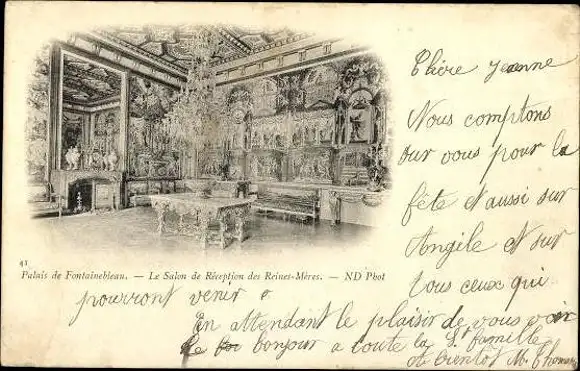 41
Palais de Fontainebleau. — Le Salon de Réception des Reines-Mères. — ND Phot
Chère Jeanne
Nous comptons
sur vous pour la
fête et aussi sur
Angèle et sur
tous ceux qui
pourront venir
En attendant le plaisir de vous voir
bonjour a toute la S. famille
a bientot M. Thomas